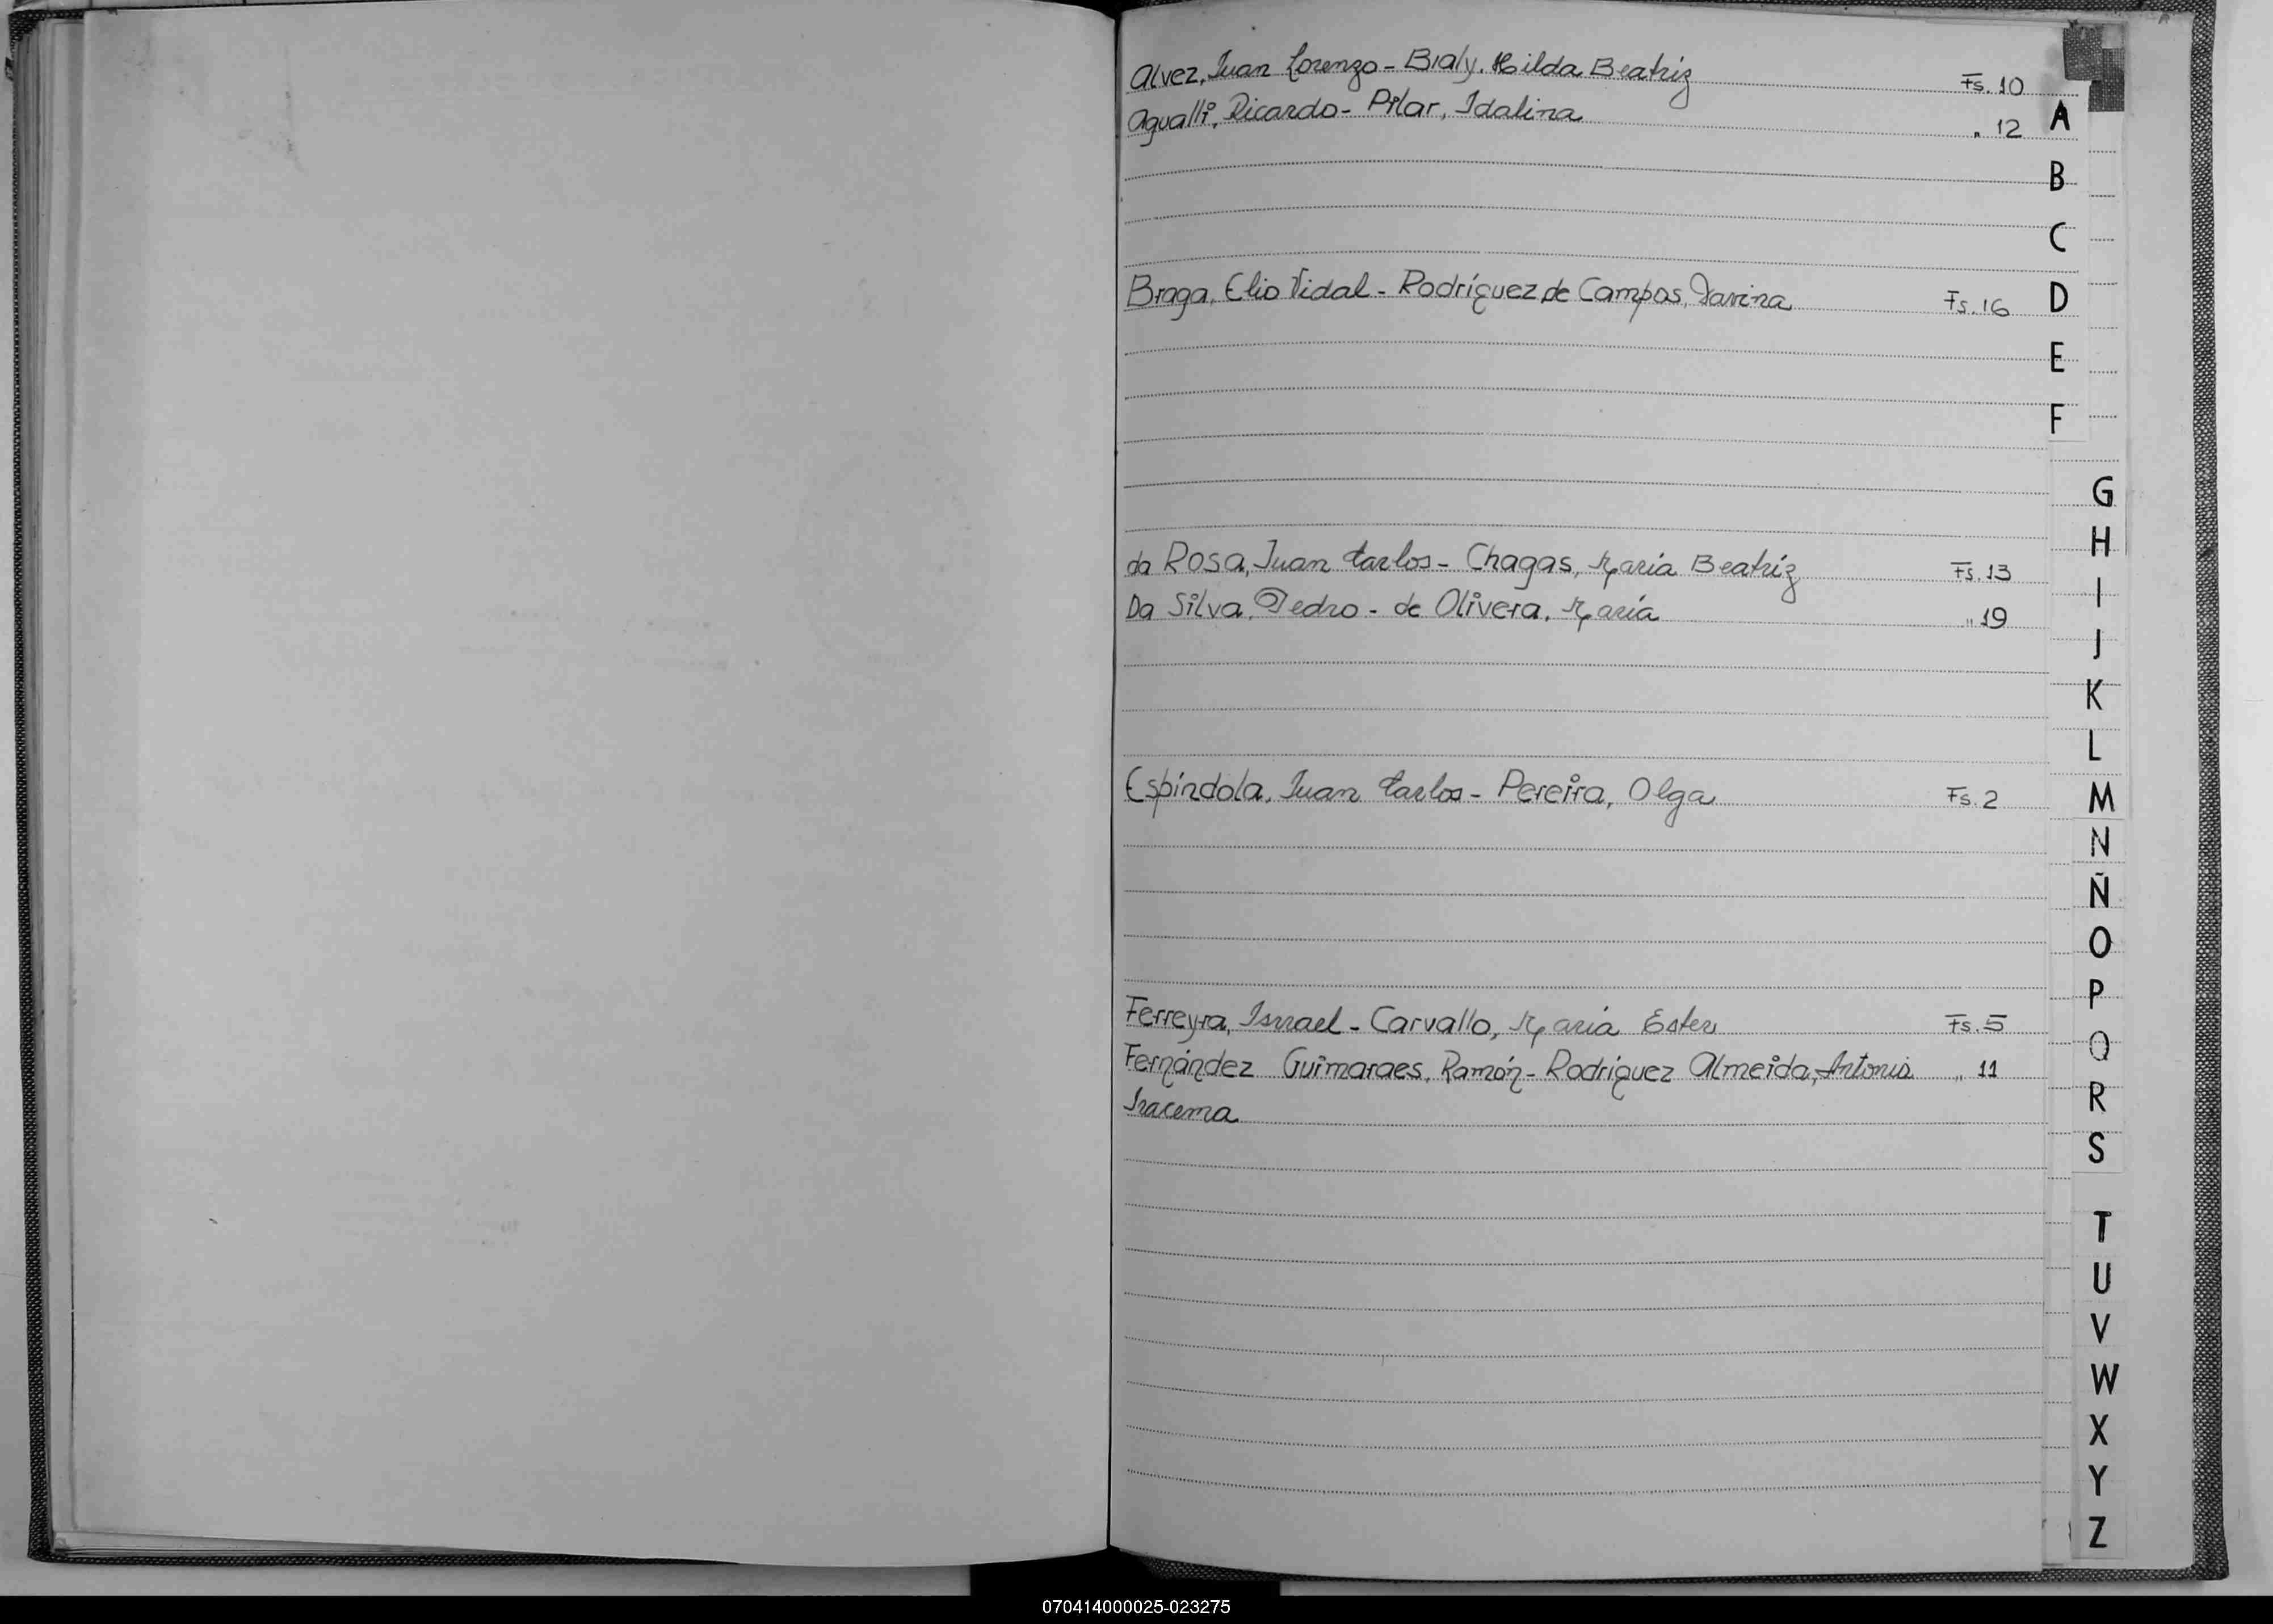 Alvez, Juan Lorenzo - Bialy, Hilda Beatriz Fs. 10
Agualli, Ricardo - Pilar, Idalina " 12
Braga, Elio Vidal - Rodríguez de Campos, Davina Fs. 16
da Rosa, Juan Carlos - Chagas, María Beatriz Fs. 13
Da Silva, Pedro - de Olivera, María " 19
Espíndola, Juan Carlos - Pereira, Olga Fs. 2
Ferreyra, Ismael - Carvallo, María Ester Fs. 5
Fernández Guimaraes, Ramón - Rodríguez Almeida, Antonia " 11
Iracema
A
B
C
D
E
F
G
H
I
J
K
L
M
N
Ñ
O
P
Q
R
S
T
U
V
W
X
Y
Z
070414000025-023275